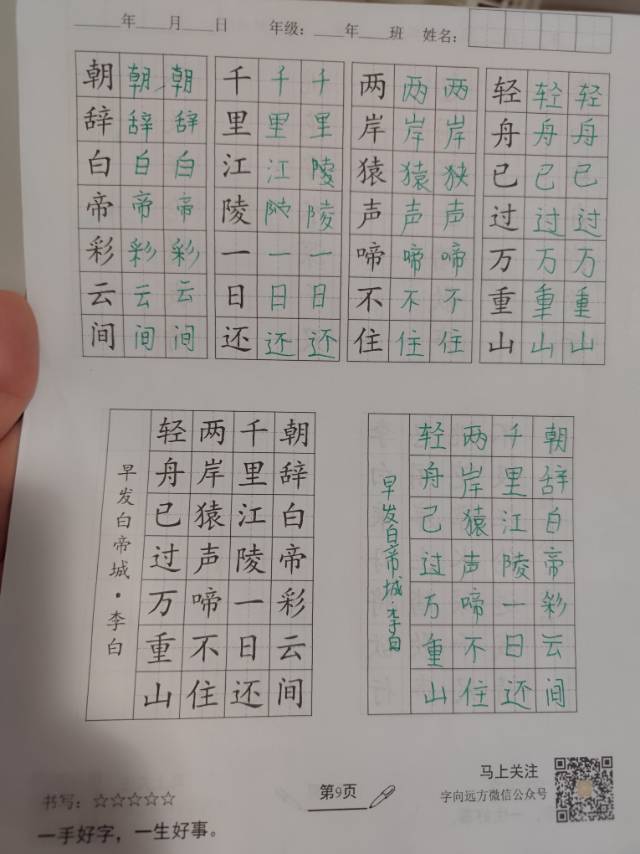 年 月 日 年级: 年 班 姓名:
朝朝朝 千千千 两两两 轻轻轻
辞辞辞 里里里 岸岸岸 舟舟舟
白白白 江江陵 猿猿狭 已已已
帝帝帝 陵陵陵 声声声 过过过
彩彩彩 一一一 啼啼啼 万万万
云云云 日日日 不不不 重重重
间间间 还还还 住住住 山山山
早发白帝城·李白
朝辞白帝彩云间
千里江陵一日还
两岸猿声啼不住
轻舟已过万重山
早发白帝城·李白
朝辞白帝彩云间
千里江陵一日还
两岸猿声啼不住
轻舟已过万重山
书写:☆☆☆☆☆
一手好字,一生好事。
第9页
马上关注
字向远方微信公众号